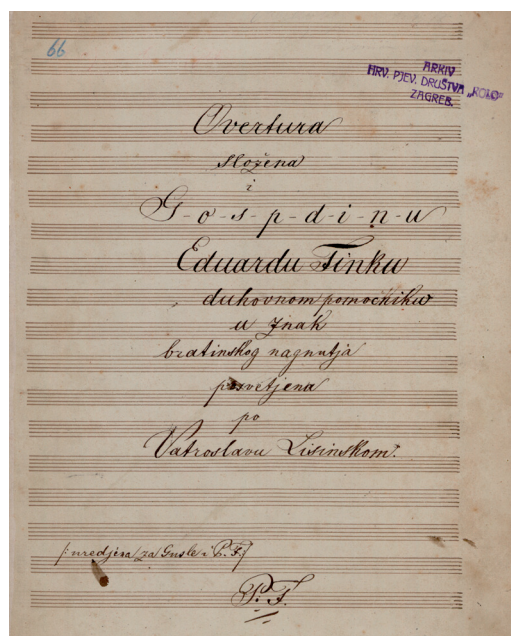 66
ARKIV
HRV. PJEV. DRUŠTVA „KOLO“
ZAGREB.
Overtura
složena
i
G-o-s-p-d-i-n-u
Eduardu Finku
duhovnom pomoćniku
u znak
bratinskog nagnutja
posvetjena
po
Vatroslavu Lisinskom.
/: uredjena za Gusle i P. F. /
P. F.